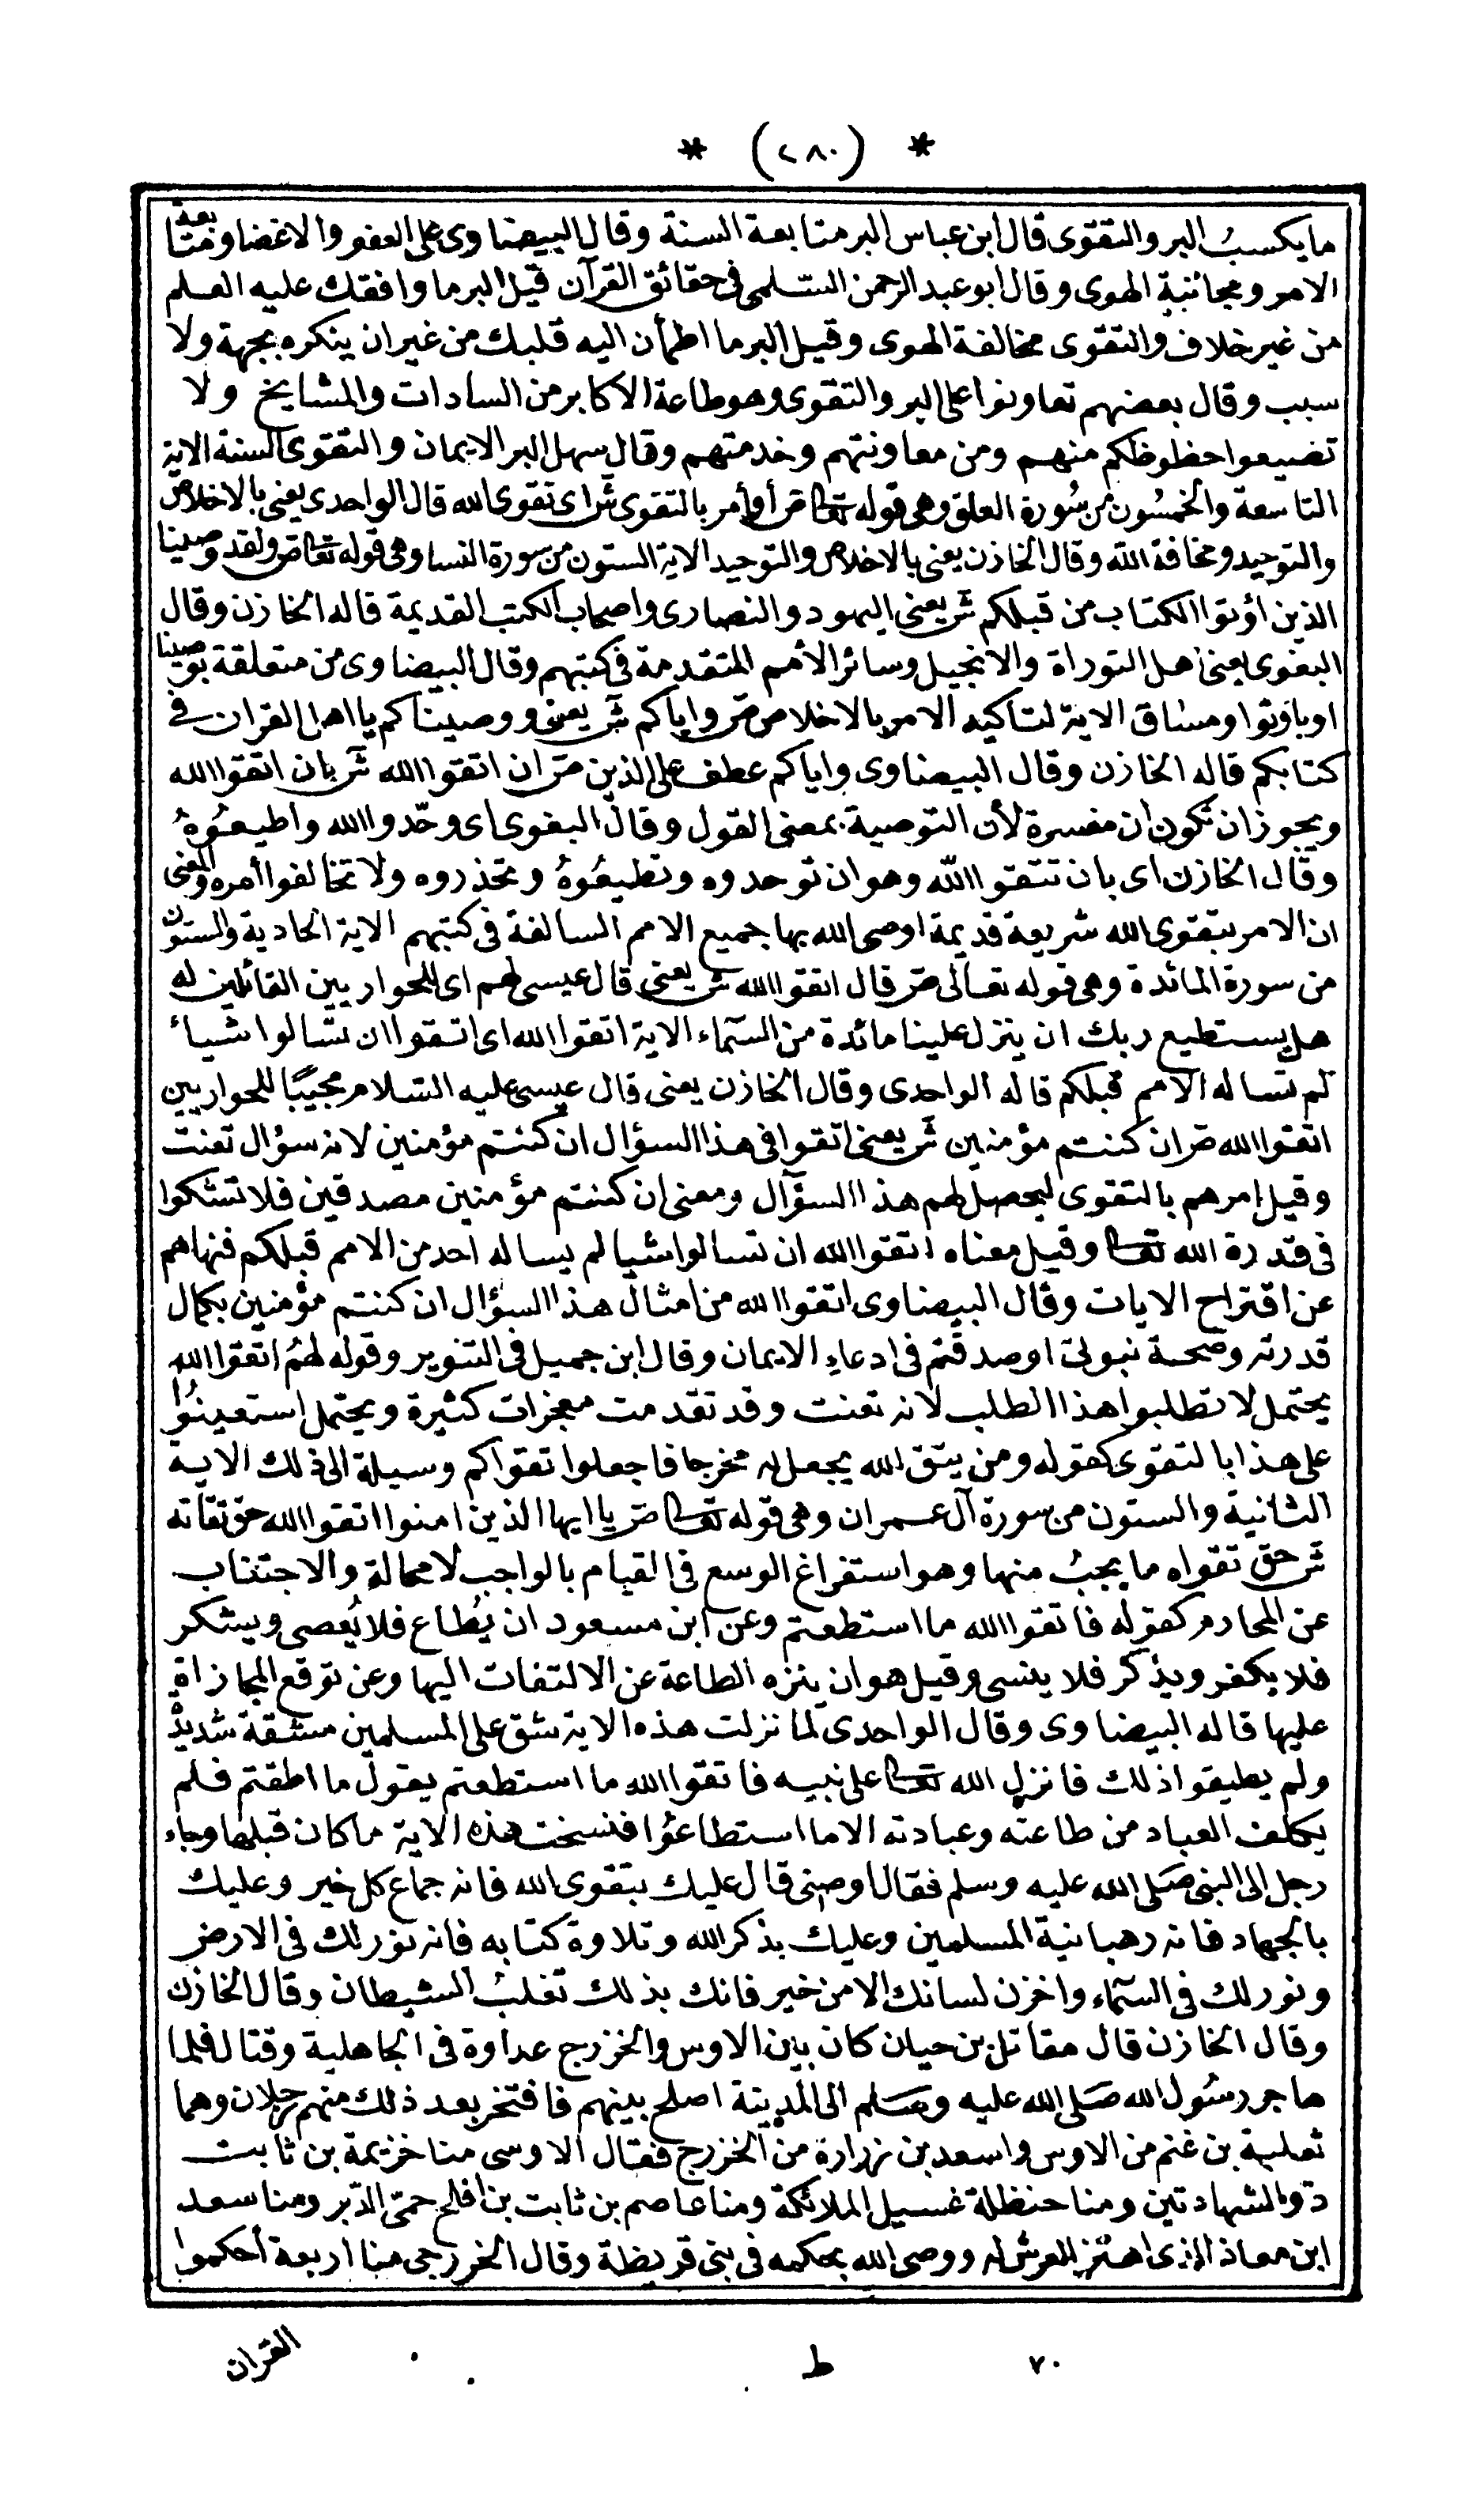 * (٢٨٠) *
ما يكسبُ البر والتقوى قال ابن عباس البر متابعة السنة وقال البيضاوى على العفو والاغضا ومتابعة
الامر ومجانبة الهوى وقال ابو عبد الرحمن السّلمى فى حقائق القرآن قيل البر ما وافقك عليه العلم
من غير خلاف والتقوى مخالفة الهوى وقيل البر ما اطمأن اليه قلبك من غير ان ينكره بجهة ولا
سبب وقال بعضهم تعاونوا على البر والتقوى وهو طاعة الاكابر من السادات والمشايخ ولا
تضيعوا حظوظكم منهم ومن معاونتهم وخدمتهم وقال سهل البر الايمان والتقوى السنة الاية
التاسعة والخمسُون من سُورة العلق وهى قوله تعالى ص أو أمر بالتقوى ش اى تقوى الله قال الواحدى يعنى بالاخلاص
والتوحيد ومخافة الله وقال الخازن يعنى بالاخلاص والتوحيد الاية الستون من سورة النسا وهى قوله تعالى ص ولقد وصينا
الذين أوتوا الكتاب من قبلكم ش يعنى اليهود والنصارى واصحاب الكتب القديمة قاله الخازن وقال
البغوى يعنى اهل التوراة والانجيل وسائر الأمم المتقدمة فى كتبهم وقال البيضاوى من متعلقة بوصينا
او باوتوا ومساق الاية لتاكيد الامر بالاخلاص ص واياكم ش يعنى ووصيناكم يا اهل القران فى
كتابكم قاله الخازن وقال البيضاوى واياكم عطف على الذين ص ان اتقوا الله ش بان اتقوا الله
ويجوز ان تكون ان مفسرة لأن التوصية بمعنى القول وقال البغوى اى وحّدوا الله واطيعُوهُ
وقال الخازن اى بان تتقوا الله وهو ان توحدوه وتطيعُوهُ وتحذروه ولا تخالفوا أمره والمعنى
ان الامر بتقوى الله شريعة قديمة اوصى الله بها جميع الامم السالفة فى كتبهم الاية الحادية والستون
من سورة المائدة وهى قوله تعالى ص قال اتقوا الله ش يعنى قال عيسى لهم اى للحواريين القائلين له
هل يستطيع ربك ان ينزل علينا مائدة من السمآء الاية اتقوا الله اى اتقوا ان تسالوا شياء
لم تساله الامم قبلكم قاله الواحدى وقال الخازن يعنى قال عيسى عليه السّلام مجيبًا للحواريين
اتقوا الله ص ان كنتم مؤمنين ش يعنى اتقوا فى هذا السؤال ان كنتم مؤمنين لانه سؤال تعنت
وقيل امرهم بالتقوى ليحصل لهم هذا السؤآل ومعنى ان كنتم مؤمنين مصدقين فلا تشكوا
فى قدرة الله تعالى وقيل معناه اتقوا الله ان تسالوا شيا لم يساله احد من الامم قبلكم فنهاهم
عن اقتراح الايات وقال البيضاوى اتقوا الله من امثال هذا السؤال ان كنتم مؤمنين بكمال
قدرته وصحة نبوتى او صدقتم فى ادعاء الايمان وقال ابن جميل فى التنوير وقوله لهُم اتقوا الله
يحتمل لا تطلبوا هذا الطلب لانه تعنت وقد تقدمت معجزات كثيرة ويحتمل استعينوُا
على هذا بالتقوى كقوله ومن يتق الله يجعل له مخرجا فاجعلوا تقواكم وسيلة الى ذلك الاية
الثانية والستون من سورة آل عمران وهى قوله تعالى ص يا ايها الذين امنوا اتقوا الله حق تقاته
ش حق تقواه ما يجبُ منها وهو استفراغ الوسع فى القيام بالواجب لا محالة والاجتناب
عن المحارم كقوله فاتقوا الله ما استطعتم وعن ابن مسعود ان يُطاع فلا يُعصى ويشكر
فلا يكفر ويذكر فلا ينسى وقيل هو ان ينزه الطاعة عن الالتفات اليها وعن توقع المجازاة
عليها قاله البيضاوى وقال الواحدى لما نزلت هذه الاية شق على المسلمين مشقة شديدة
ولم يطيقوا ذلك فانزل الله تعالى على نبيه فاتقوا الله ما استطعتم يقول ما اطقتم فلم
يكلف العباد من طاعته وعبادته الا ما استطاعوُا فنسخت هذه الاية ما كان قبلها وجاء
رجل الى النبى صَلى الله عليه وسلم فقال اوصنى قال عليك بتقوى الله فانه جماع كل خير وعليك
بالجهاد فانه رهبانية المسلمين وعليك بذكر الله وتلاوة كتابه فانه نور لك فى الارض
ونور لك فى السمآء واخزن لسانك الا من خير فانك بذلك تغلبُ الشيطان وقال الخازن
وقال الخازن قال مقاتل بن حيان كان بين الاوس والخزرج عداوة فى الجاهلية وقتال فلما
هاجر رسُول الله صَلى الله عليه وسَلم الى المدينة اصلح بينهم فافتخر بعد ذلك منهم رجلان وهما
ثعلبة بن غنم من الاوس واسعد بن زرارة من الخزرج فقال الاوسى منا خزيمة بن ثابت
ذو الشهادتين ومنا حنظلة غسيل الملائكة ومنا عاصم بن ثابت بن افلح حمىّ الدّبر ومنا سعد
ابن معاذ الذى اهتز العرش له ورضى الله بحكمه فى بنى قريظة وقال الخزرجى منا اربعة أحكموا
٧٠ ط القران